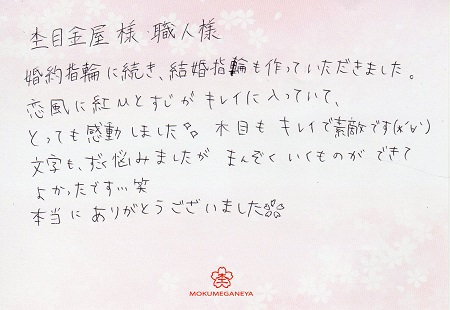 杢目金屋様・職人様
婚約指輪に続き、結婚指輪も作っていただきました。
恋風に紅ひとすじがキレイに入っていて、
とっても感動しました 木目もキレイで素敵です(*'∨')
文字も、すごく悩みましたが まんぞくいくものができて
よかったです!!! 笑
本当にありがとうございました
MOKUMEGANEYA